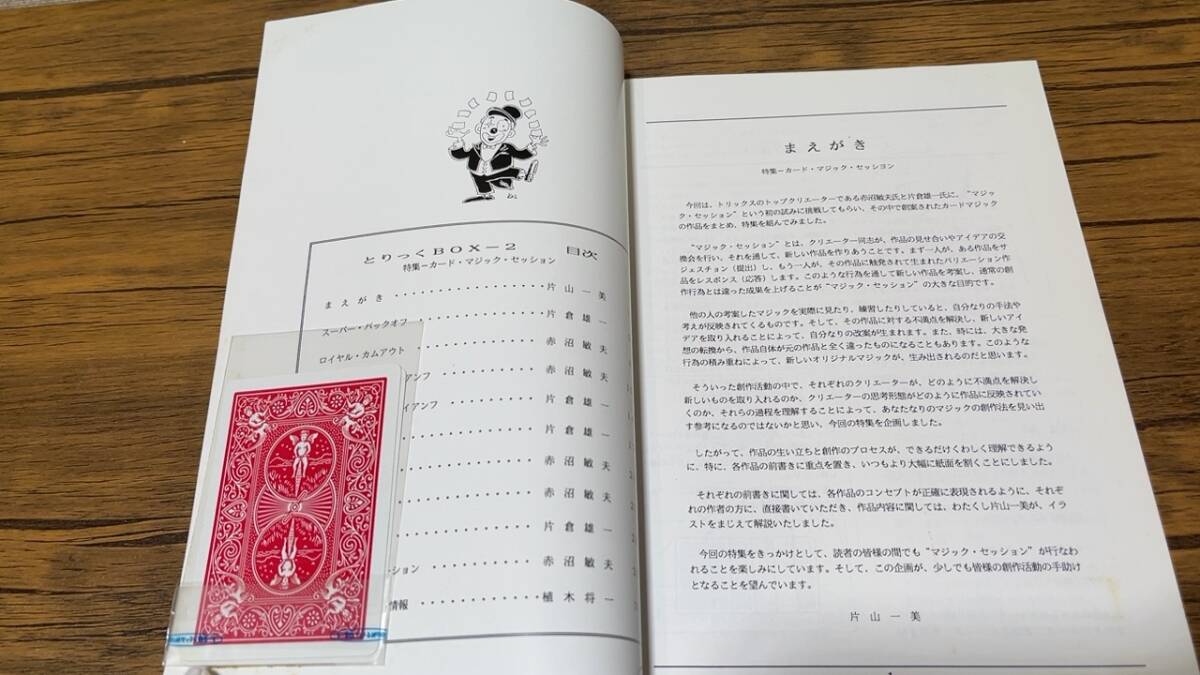 とりっくBOX－2　目次
特集－カード・マジック・セッション
まえがき・・・・・・・・・・・・・片山一美
スーパー・バックオフ・・・・・・・片倉雄一
ロイヤル・カムアウト・・・・・・・赤沼敏夫
ンフ・・・・・・・・・・・赤沼敏夫
イアンフ・・・・・・・・・片倉雄一
・・・・・・・・・・・片倉雄一
・・・・・・・・・・・赤沼敏夫
・・・・・・・・・・・赤沼敏夫
・・・・・・・・・・・片倉雄一
ーション・・・・・・・・・赤沼敏夫
情報・・・・・・・・・・・植木将一
まえがき
特集－カード・マジック・セッション
今回は、トリックスのトップクリエーターである赤沼敏夫氏と片倉雄一氏に、“マジッ
ク・セッション”という初の試みに挑戦してもらい、その中で創案されたカードマジック
の作品をまとめ、特集を組んでみました。
“マジック・セッション”とは、クリエーター同志が、作品の見せ合いやアイデアの交
換会を行い、それを通して、新しい作品を作りあうことです。まず一人が、ある作品をサ
ジェスチョン（提出）し、もう一人が、その作品に触発されて生まれたバリエーション作
品をレスポンス（応答）します。このような行為を通して新しい作品を考案し、通常の創
作行為とは違った成果を上げることが“マジック・セッション”の大きな目的です。
他の人の考案したマジックを実際に見たり、練習したりしていると、自分なりの手法や
考えが反映されてくるものです。そして、その作品に対する不満点を解決し、新しいアイ
デアを取り入れることによって、自分なりの改案が生まれます。また、時には、大きな発
想の転換から、作品自体が元の作品と全く違ったものになることもあります。このような
行為の積み重ねによって、新しいオリジナルマジックが、生み出されるのだと思います。
そういった創作活動の中で、それぞれのクリエーターが、どのように不満点を解決し
新しいものを取り入れるのか、クリエーターの思考形態がどのように作品に反映されてい
くのか、それらの過程を理解することによって、あなたなりのマジックの創作法を見い出
す参考になるのではないかと思い、今回の特集を企画しました。
したがって、作品の生い立ちと創作のプロセスが、できるだけくわしく理解できるよう
に、特に、各作品の前書きに重点を置き、いつもより大幅に紙面を割くことにしました。
それぞれの前書きに関しては、各作品のコンセプトが正確に表現されるように、それぞ
れの作者の方に、直接書いていただき、作品内容に関しては、わたくし片山一美が、イラ
ストをまじえて解説いたしました。
今回の特集をきっかけとして、読者の皆様の間でも“マジック・セッション”が行なわ
れることを楽しみにしています。そして、この企画が、少しでも皆様の創作活動の手助け
となることを望んでいます。
片山一美